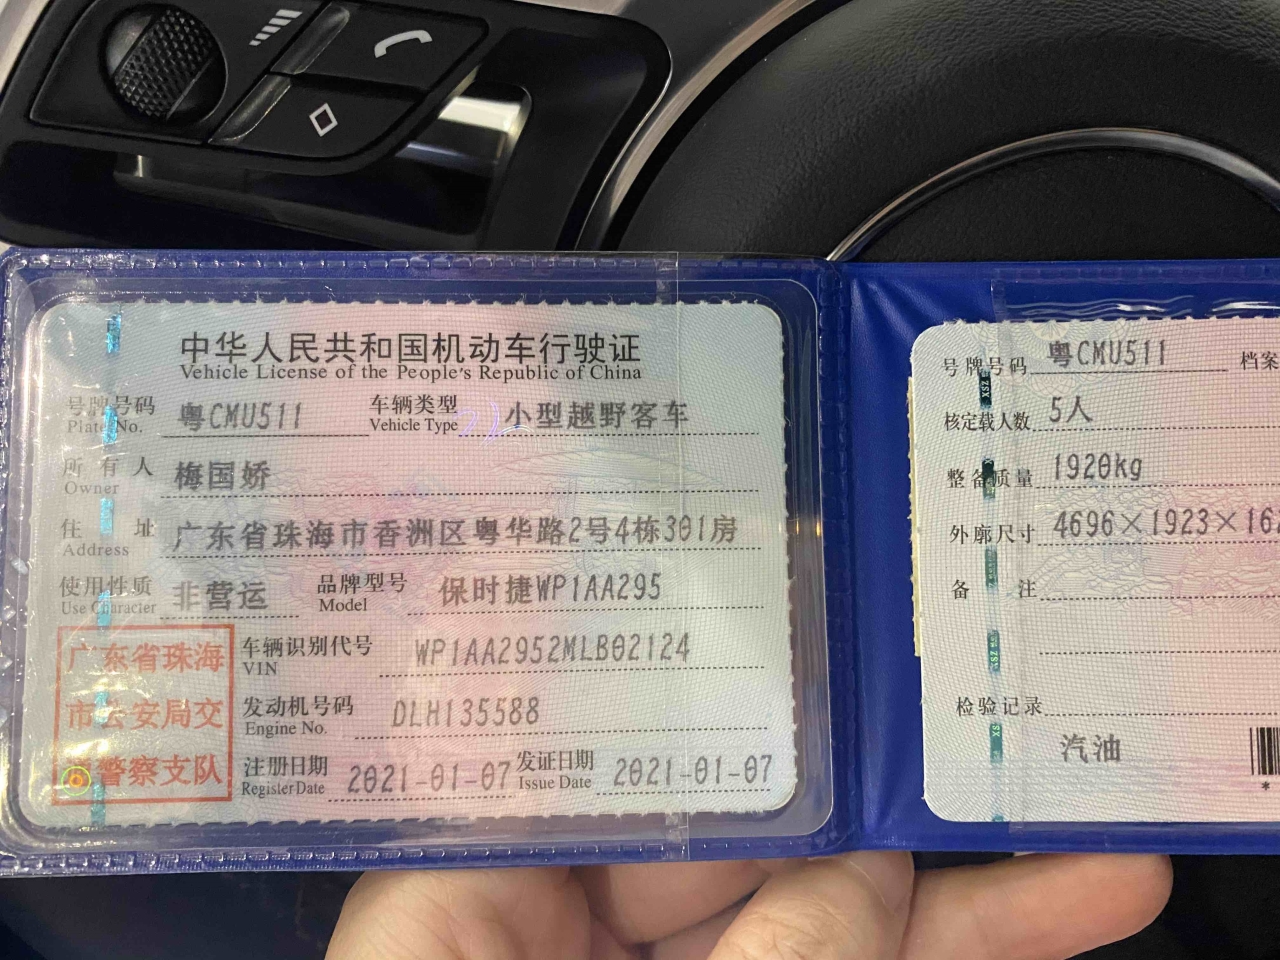 中华人民共和国机动车行驶证
Vehicle License of the People's Republic of China
号牌号码 粤CMU511 车辆类型 小型越野客车
Plate No. Vehicle Type
所有人 梅国娇
Owner
住址 广东省珠海市香洲区粤华路2号4栋301房
Address
使用性质 非营运 品牌型号 保时捷WP1AA295
Use Character Model
广东省珠海
市公安局交
警察支队
车辆识别代号 WP1AA2952MLB02124
VIN
发动机号码 DLH135588
Engine No.
注册日期 2021-01-07 发证日期 2021-01-07
Register Date Issue Date
号牌号码 粤CMU511 档案
核定载人数 5人
整备质量 1920kg
外廓尺寸 4696×1923×16
备注
检验记录
汽油
*
XSZ
XSZ
XS